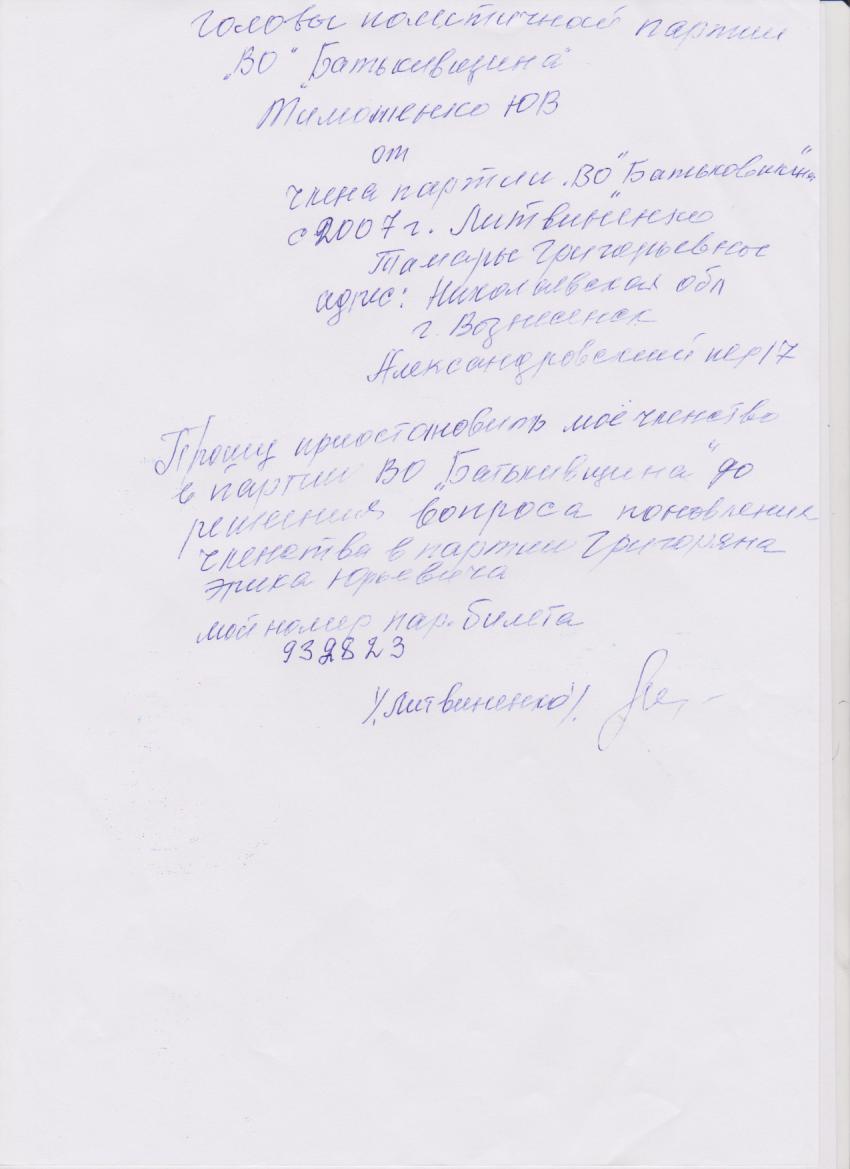 Головы политичной партии
"ВО" "Батькивщина"
Тимошенко ЮВ
от
члена партии ВО "Батьковщина"
с 2007 г. Литвиненко
Тамары Григорьевны
адрес: Николаевская обл
г. Вознесенск
Александровский пер 17
Прошу приостановить моё членство
в партии ВО "Батькивщина" до
решения вопроса поновления
членства в партии Григоряна
Эрика Юрьевича
мой номер пар. билета
932823
/Литвиненко/